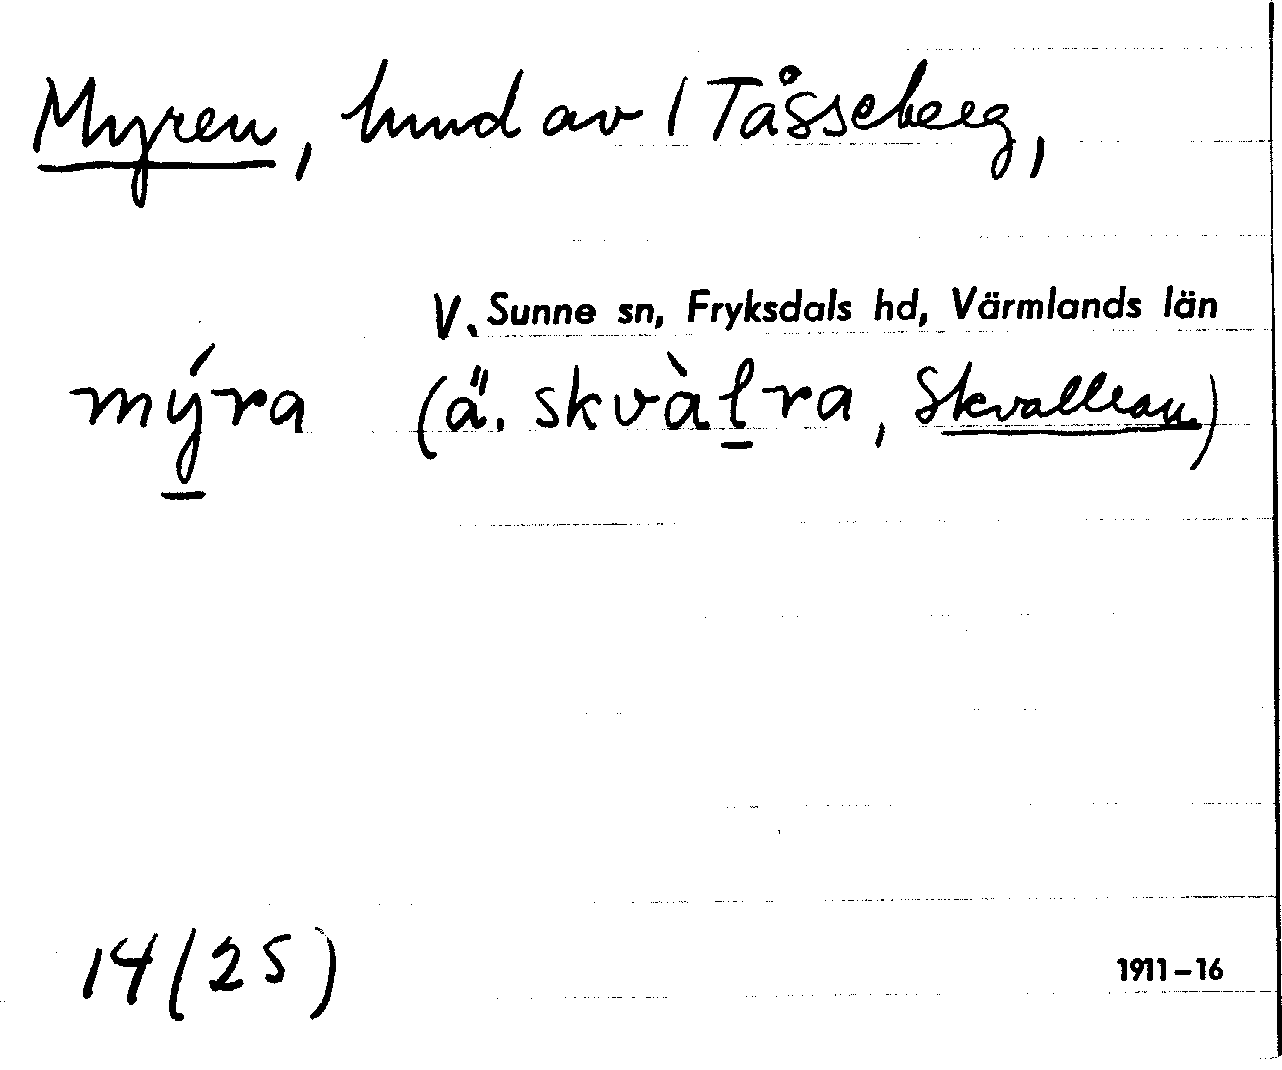 Myren, hmd av 1 Tåsseberg,
V. Sunne sn, Fryksdals hd, Värmlands län
mýra (ä. skvàlra, Skvallran)
14 (25)
1911–16